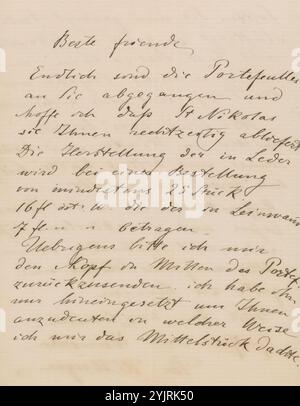 Beste friende,
Endlich sind die Portefeuilles
an Sie abgegangen und
hoffe ich daß St Nikolas
sie Ihnen rechtzeitig abliefert
Die Herstellung der in Leder
wird bei einer Bestellung
von mindestens 25 Stück
16 fl öst. W die der in Leinwand
7 fl betragen.
Uebrigens bitte ich mir
den Kopf in Mitten des Porte
zurückzusenden. ich habe ihn
nur hineingesetzt um Ihnen
anzudeuten in welcher Weise
ich mir das Mittelstück dachte.
alamy
Image ID: 2YJRK50
www.alamy.com